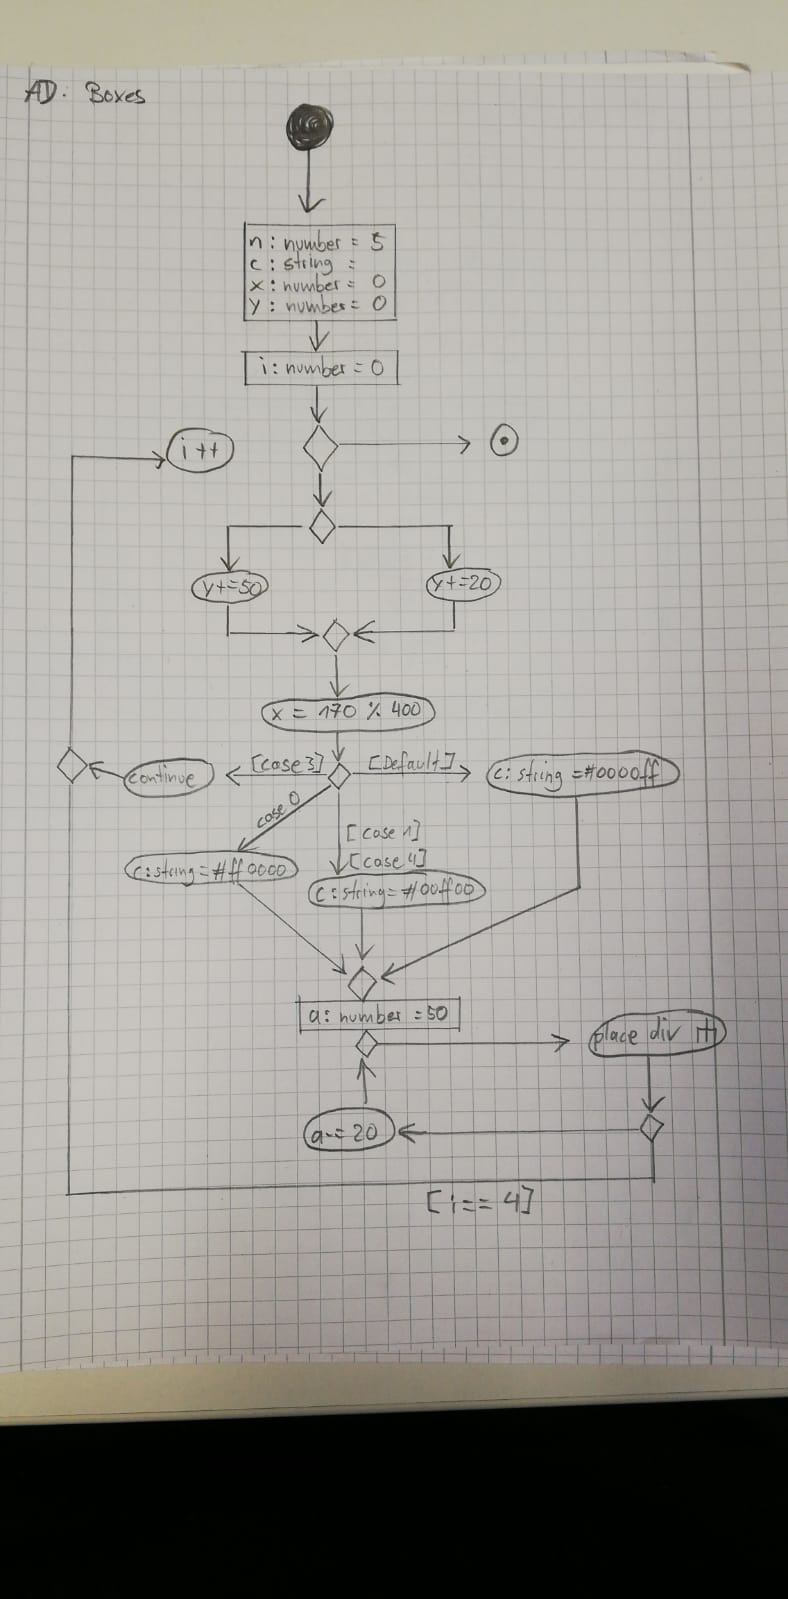 AD: Boxes
n : number = 5
c : string =
x : number = 0
y : number = 0
i : number = 0
i ++
y+=50
y+=20
x = 170 % 400
[case 3]
[Default]
continue
c: string =#0000ff
case 0
[case 1]
[case 4]
c:string=#ff0000
c:string=#00ff00
a: number =50
place div
a-=20
[i== 4]